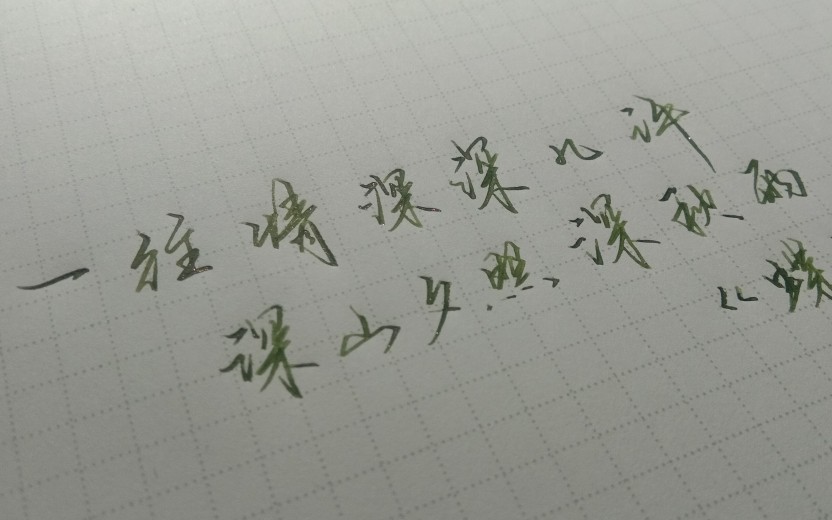 一往情深深几许
深山夕照深秋雨
《蝶